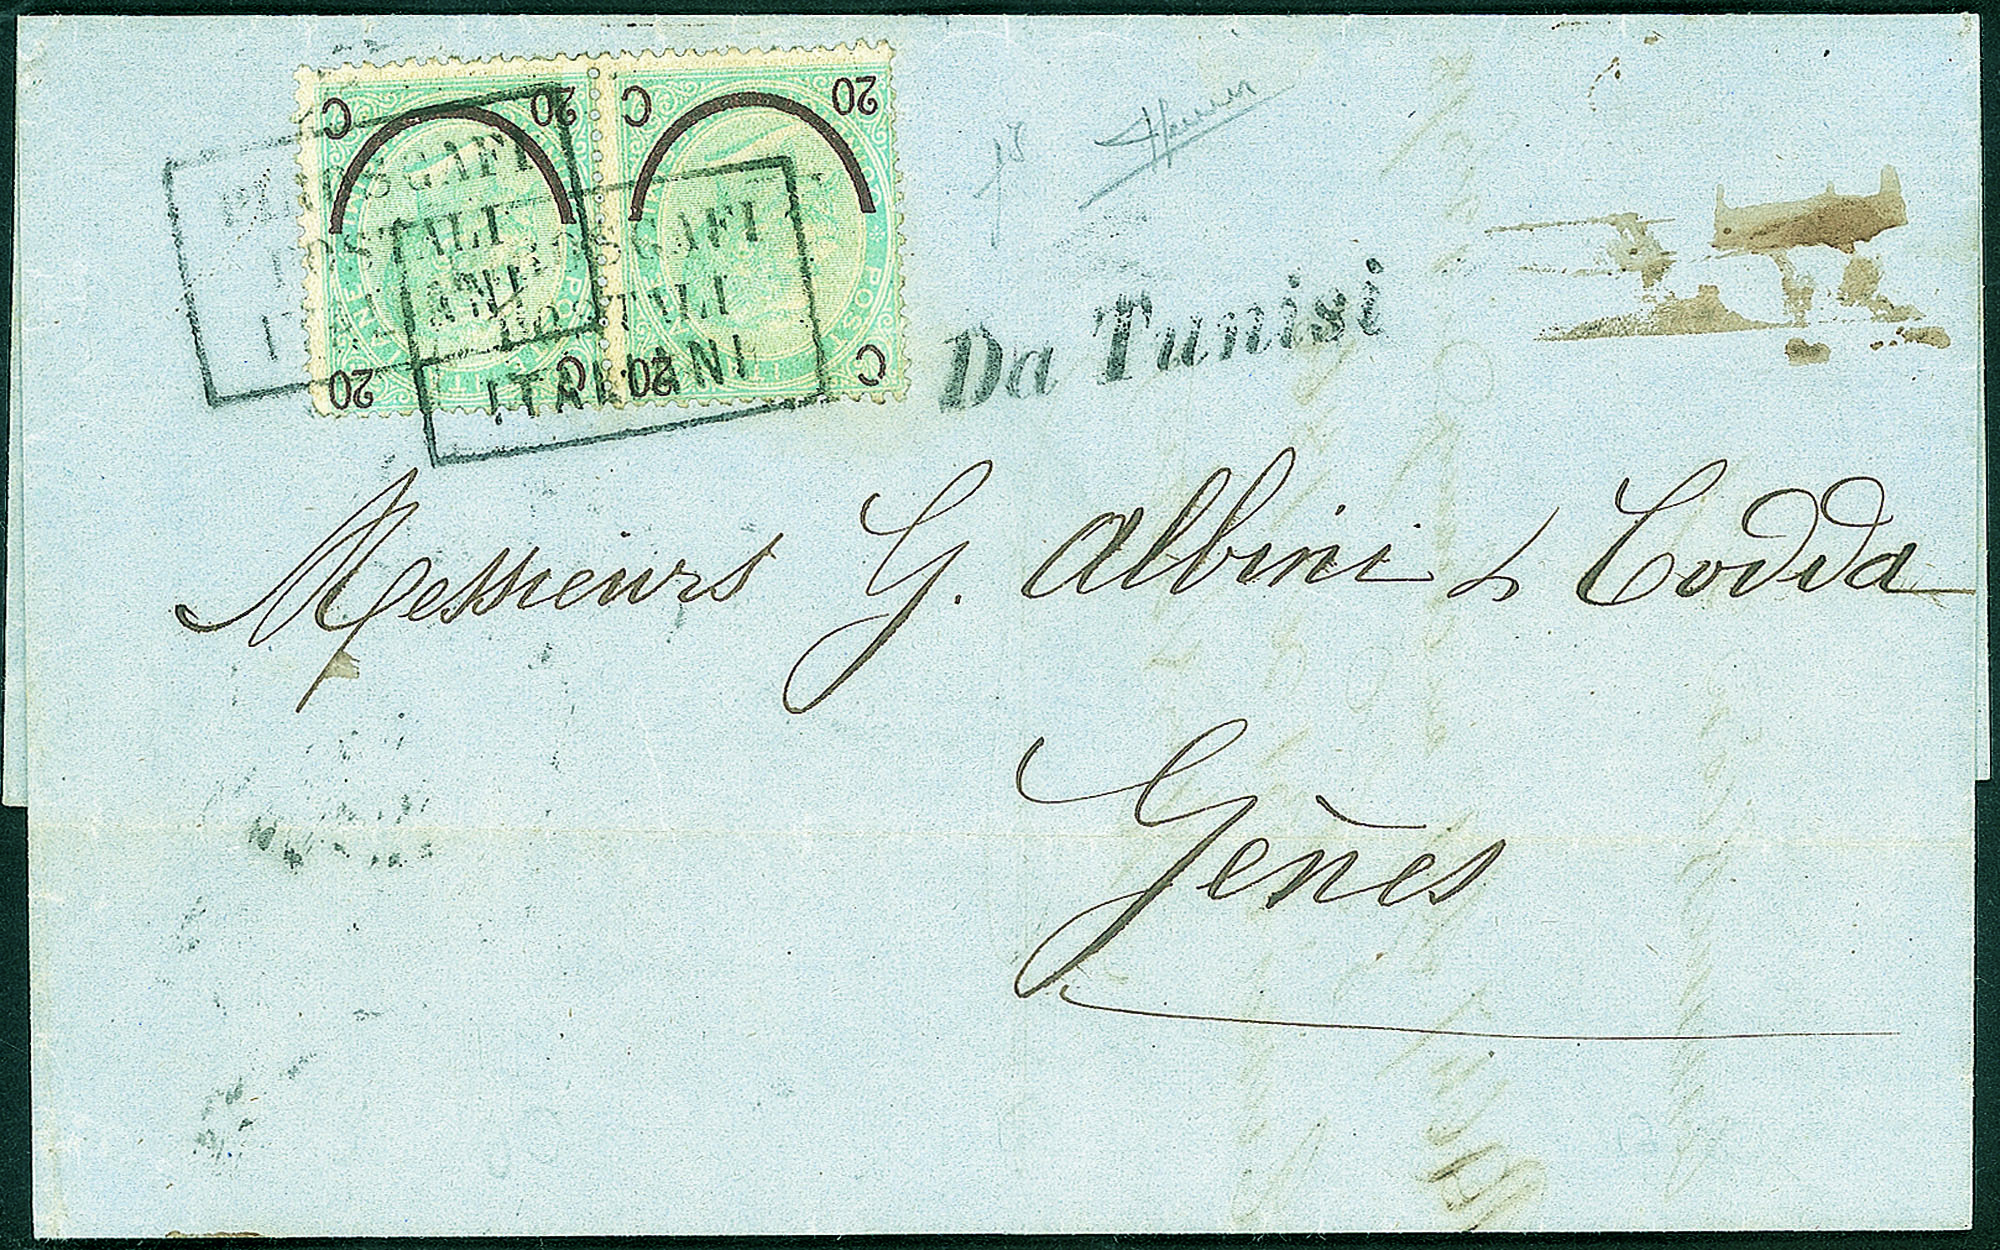 C 20 C 20
PIROSCAFI
POSTALI
ITALIANI
PIROSCAFI
POSTALI
ITALIANI
20 C 20 C
Da Tunisi
Messieurs G. Albini & Codda
Gênes